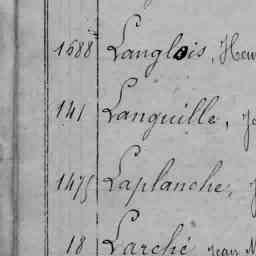 1688 Langlois, Hen
141 Languille, J
1475 Laplanche, J
18 Larché Jean M